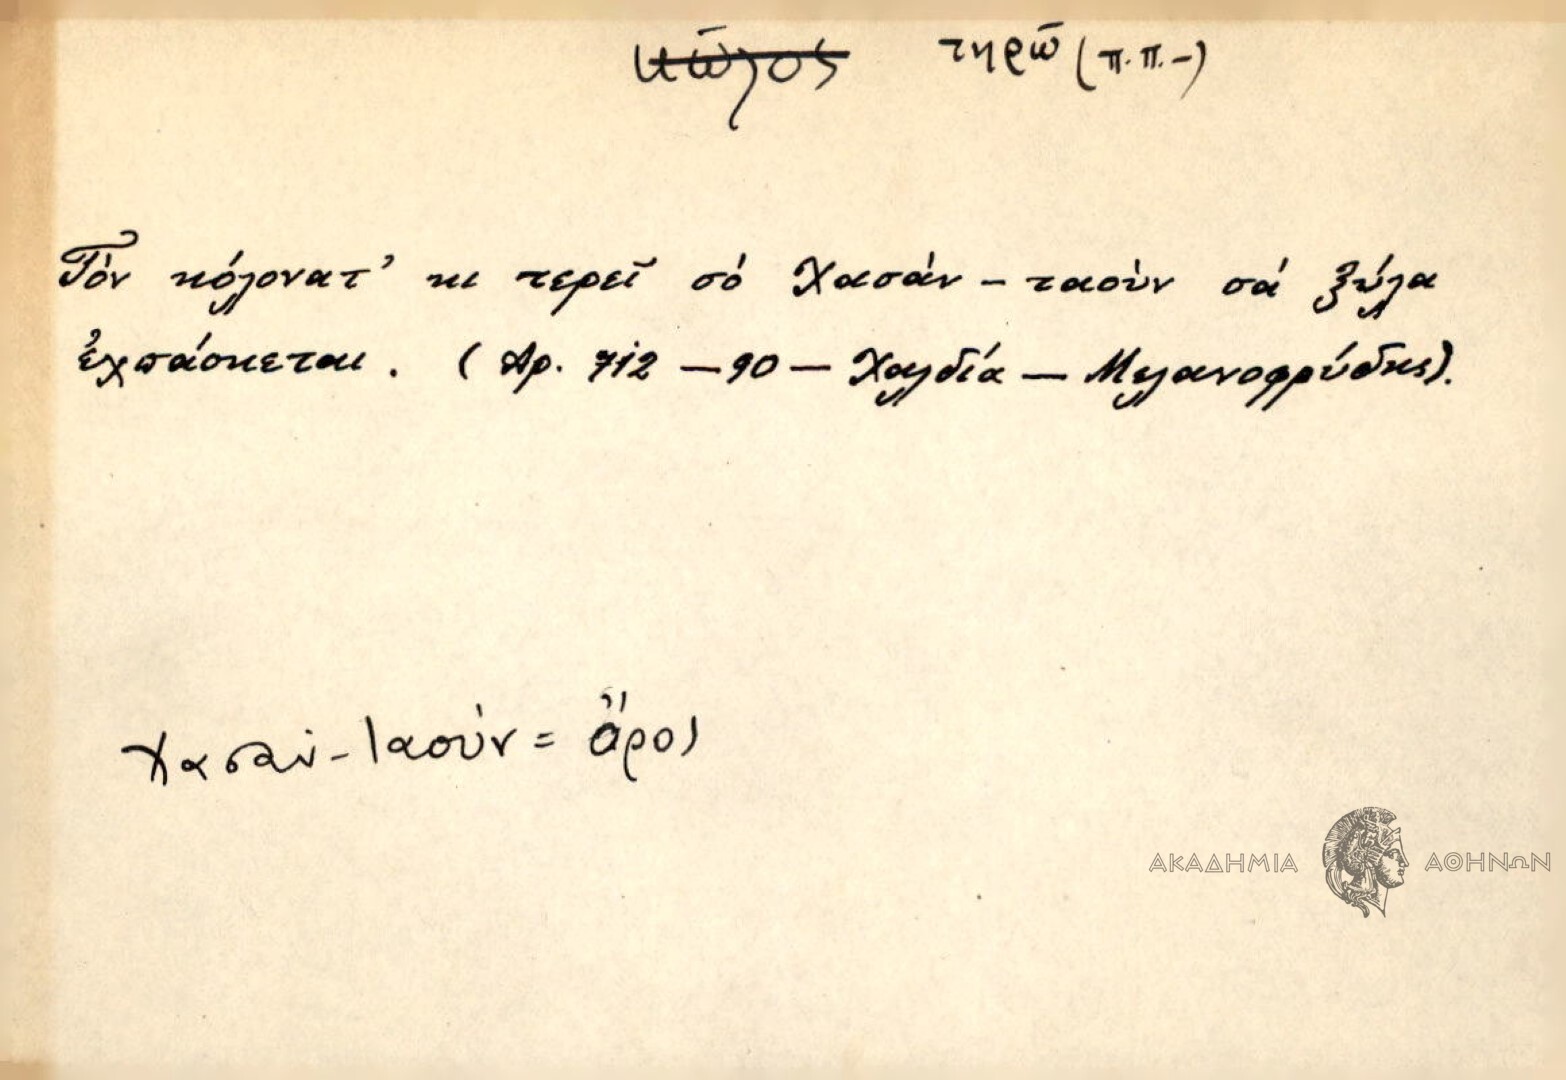 κῶλος τηρῶ (π.π.-)
Τὸν κόλονατ' κι τερεῖ σό Χασάν - ταοὺν σά ξύλα
ἐχπάσκεται. (Αρ. 712 - 90 - Χαλδία - Μελανοφρύδης).
Χασαν - Ταοὺν = ὄρος
ΑΚΑΔΗΜΙΑ ΑΘΗΝΩΝ